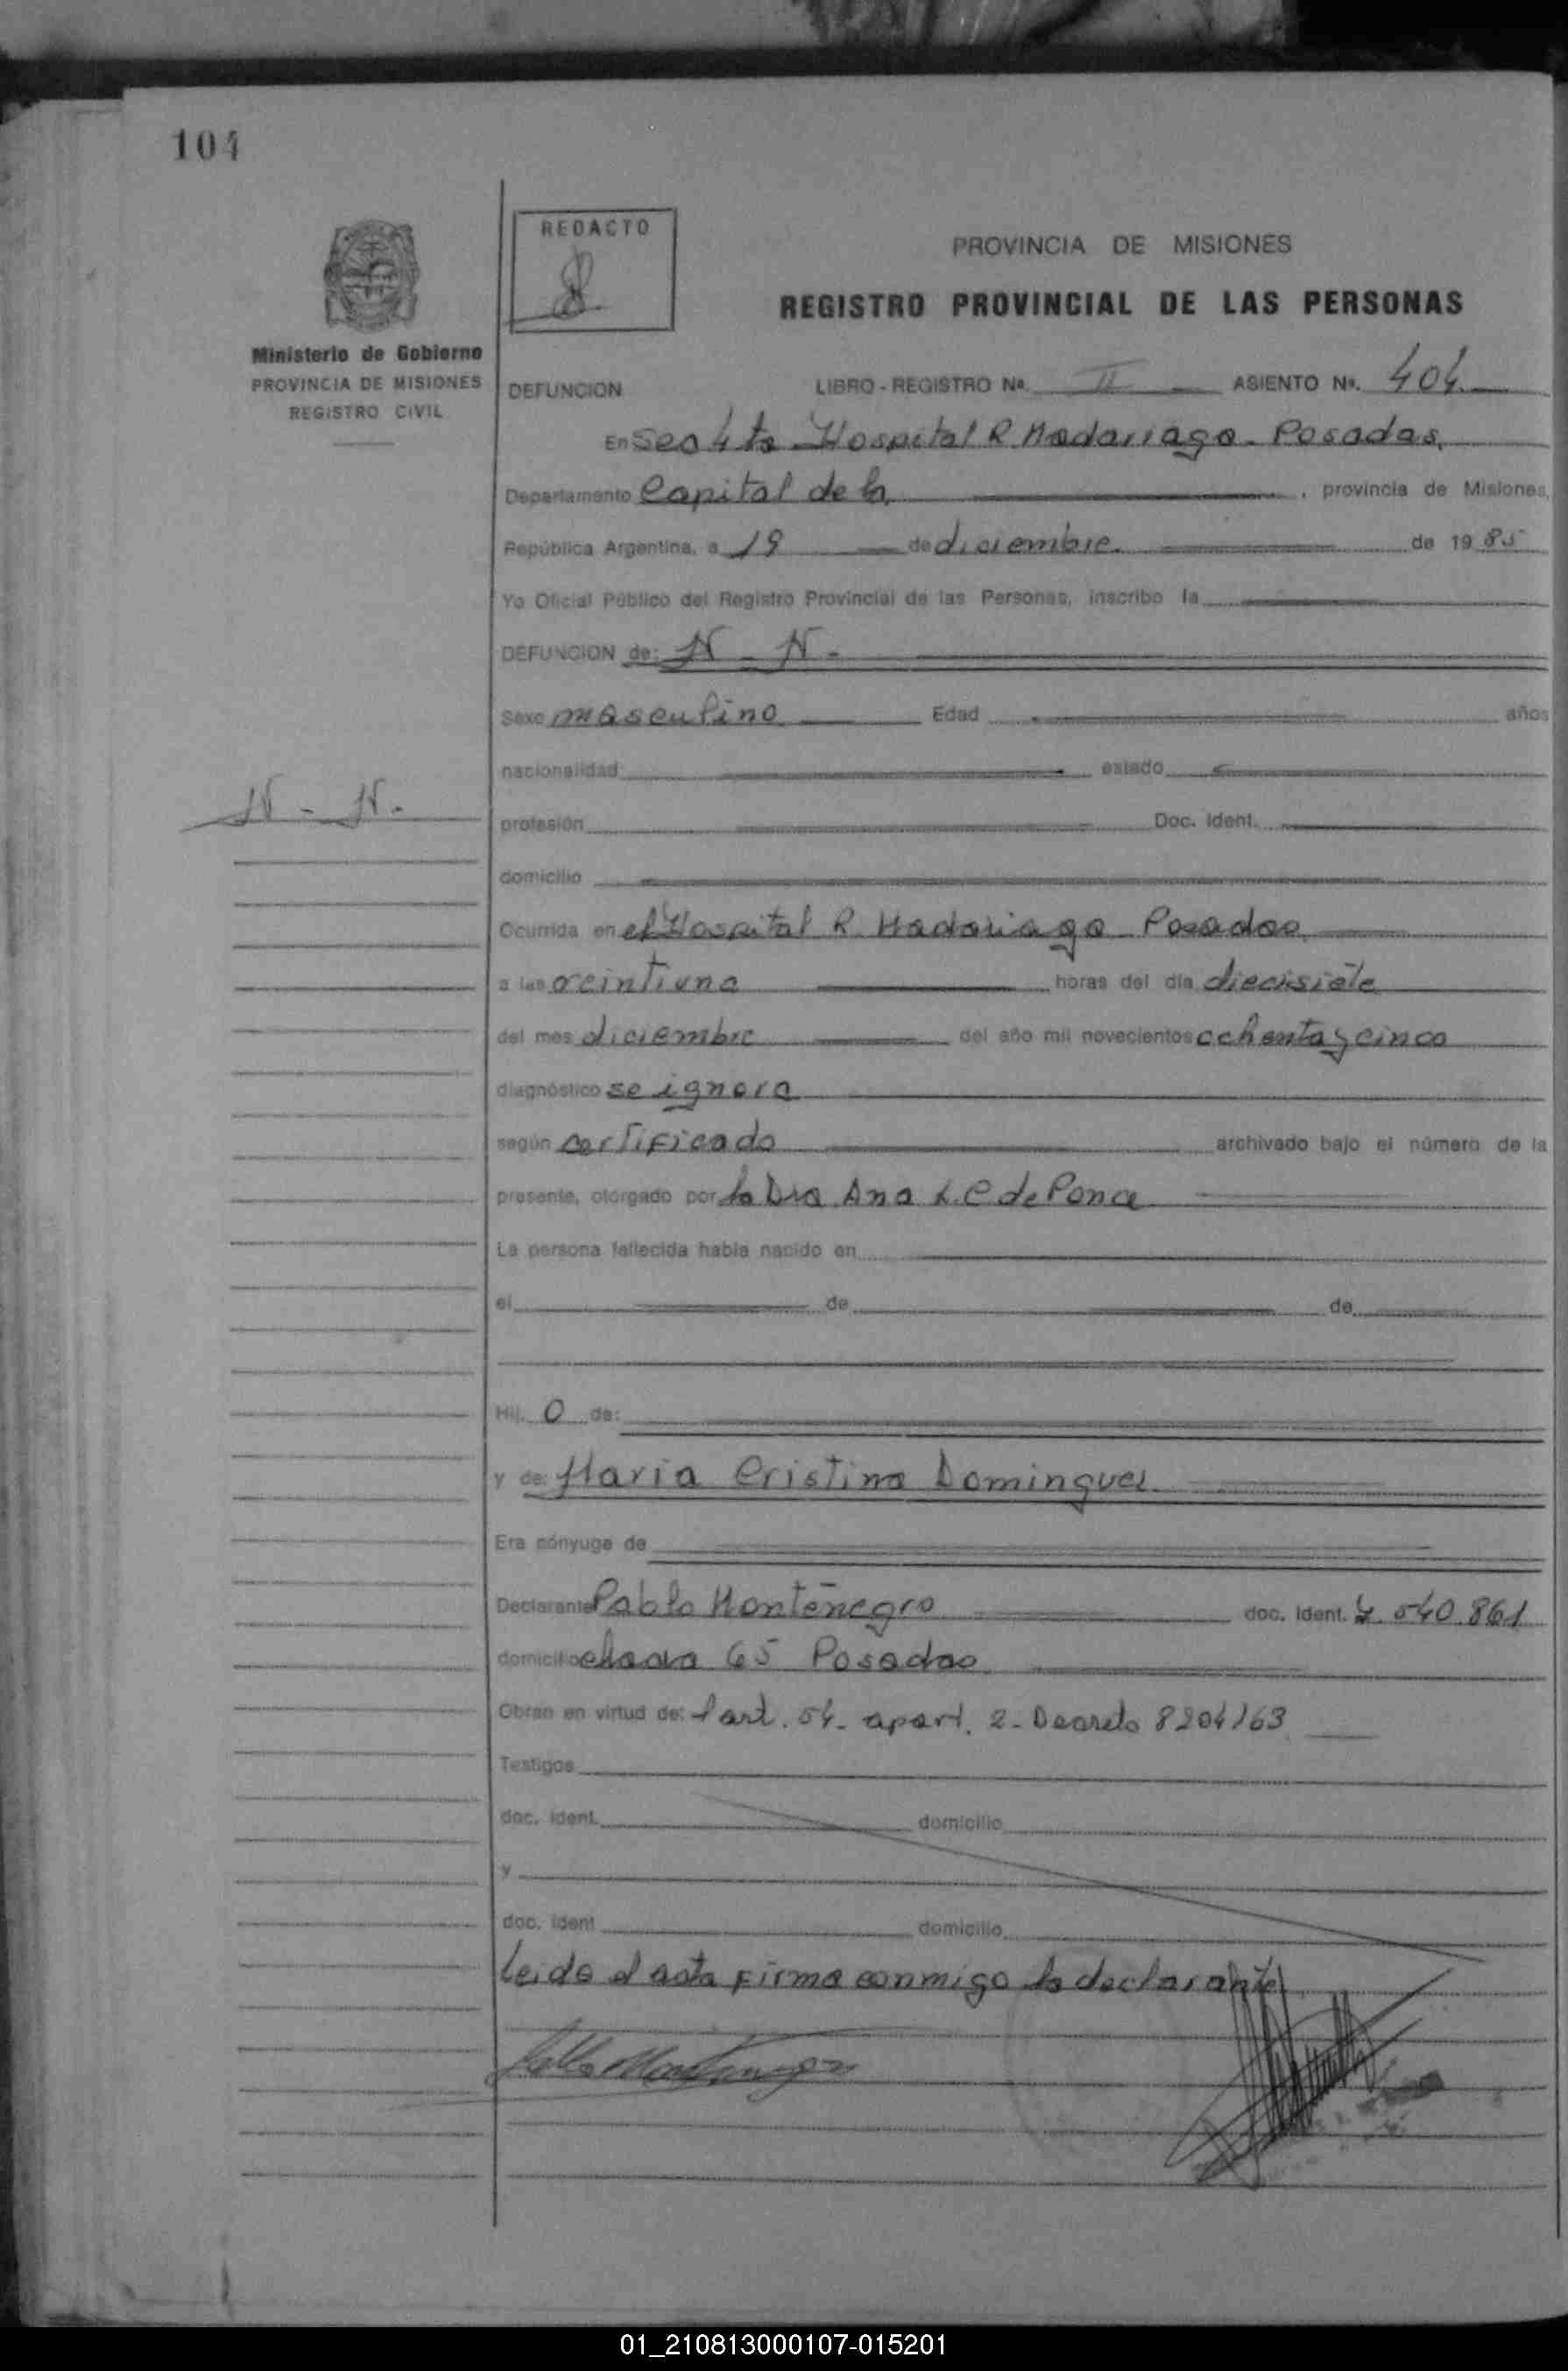 104
REDACTO
PROVINCIA DE MISIONES
REGISTRO PROVINCIAL DE LAS PERSONAS
Ministerio de Gobierno
PROVINCIA DE MISIONES
REGISTRO CIVIL
DEFUNCION LIBRO - REGISTRO Nº. II ASIENTO Nº. 404
En Sec 4ta Hospital R Madariaga - Posadas,
Departamento Capital de la, provincia de Misiones,
República Argentina, a 19 de diciembre de 1985
Yo Oficial Público del Registro Provincial de las Personas, inscribo la
DEFUNCION de: N - N -
Sexo masculino Edad años
nacionalidad estado
N - N -
profesión Doc. Ident.
domicilio
Ocurrida en el Hospital R Madariaga Posadas
a las veintiuna horas del día diecisiete
del mes diciembre del año mil novecientos ochenta y cinco
diagnóstico se ignora
según certificado archivado bajo el número de la
presente, otorgado por la Dra Ana L. C de Ponce
La persona fallecida había nacido en
el de de
Hij. o de:
y de: Maria Cristina Dominguez
Era cónyuge de
Declarante Pablo Montenegro doc. ident. 7.540.861
domicilio chacra 65 Posadas
Obran en virtud de: l art. 54 - apart. 2 - Decreto 8204/63
Testigos
doc. ident. domicilio
y
doc. ident domicilio
Leida el acta firma conmigo la declarante
Pablo Montenegro
01_210813000107-015201